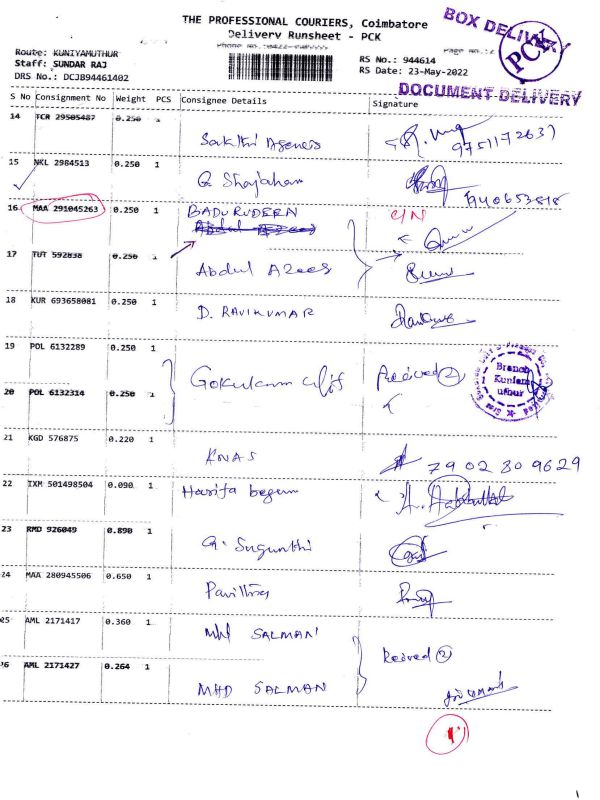 THE PROFESSIONAL COURIERS, Coimbatore
Delivery Runsheet - PCK
BOX DELIVERY
PCK
Route: KUNIYAMUTHUR
Staff: SUNDAR RAJ
DRS No.: DCJB94461402
RS No.: 944614
RS Date: 23-May-2022
DOCUMENT DELIVERY
S No Consignment No Weight PCS Consignee Details Signature
14 TCR 29505487 0.250 1
9751172637
15 NKL 2984513 0.250 1
16 MAA 291045263 0.250 1 BADURUDEEN C/N
17 TUT 592838 0.250 1 Abdul Azees
18 KUR 693658081 0.250 1 D. RAVIKUMAR
19 POL 6132289 0.250 1
Gokulam Received 2
20 POL 6132314 0.250 1
Branch
Kuniam
uthur
21 KGD 576875 0.220 1
KNAS 7902809629
22 IXM 501498504 0.090 1 Harifa begum
23 RMD 926049 0.890 1
G. Sugunthi
24 MAA 280945506 0.650 1
Pavithra
25 AML 2171417 0.360 1 SALMAN
Received 2
26 AML 2171427 0.264 1
MHD SALMAN
1